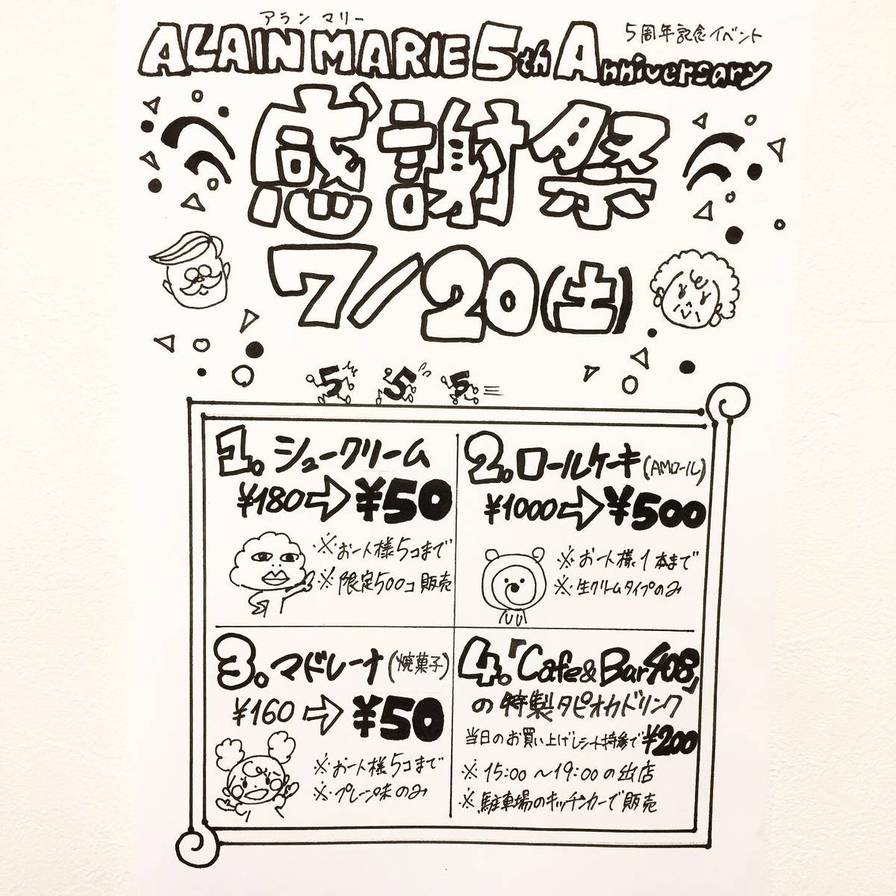 アラン マリー
5周年記念イベント
ALAIN MARIE 5th Anniversary
感謝祭
7/20(土)
5 5 5
1. シュークリーム
¥180⇨¥50
※お一人様5コまで
※限定500コ販売
2. ロールケーキ(AMロール)
¥1000⇨¥500
※お一人様1本まで
※生クリームタイプのみ
3. マドレーナ(焼菓子)
¥160⇨¥50
※お一人様5コまで
※プレーン味のみ
4.「Cafe&Bar408」
の特製タピオカドリンク
当日のお買い上げレシート持参で¥200
※15:00〜19:00の出店
※駐車場のキッチンカーで販売